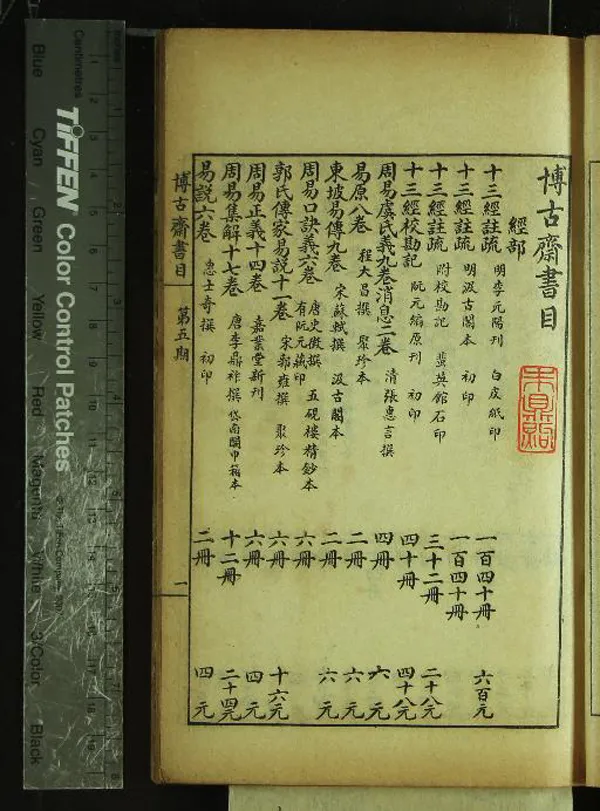 博古齋書目
經部
十三經註疏 明李元陽刊 白皮紙印 一百四十冊 六百元
十三經註疏 明汲古閣本 初印 一百四十冊
十三經註疏 附校勘記 蜚英館石印 三十二冊 二十八元
十三經校勘記 阮元編原刊 初印 四十冊 四十八元
周易虞氏義九卷消息二卷 清張惠言撰 四冊 六元
易原八卷 程大昌撰 聚珍本 二冊 六元
東坡易傳九卷 宋蘇軾撰 汲古閣本 二冊 六元
周易口訣義六卷 唐史徵撰 有阮元藏印 五硯樓精鈔本 六冊
郭氏傳家易說十一卷 宋郭雍撰 聚珍本 六冊 十六元
周易正義十四卷 嘉業堂新刊 六冊 四元
周易集解十七卷 唐李鼎祚撰 岱南閣巾箱本 十二冊 二十四元
易説六卷 惠士奇撰 初印 二冊 四元
博古齋書目 第五期 一
Centimetres
TIFFEN Color Control Patches
Blue
Cyan
Green
Yellow
Red
Magenta
White
3/Color
Black